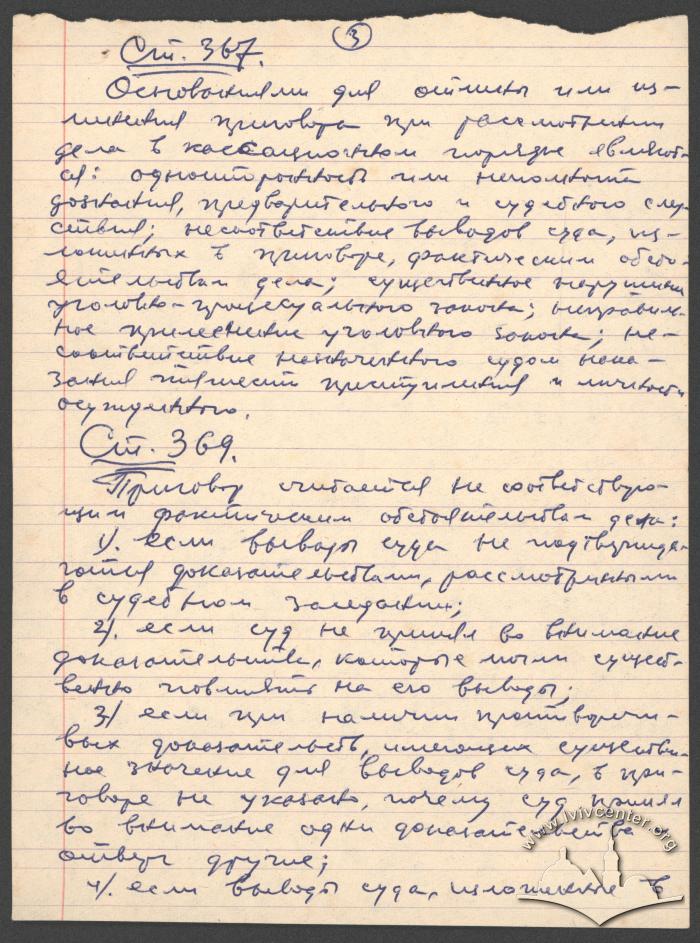 3
Ст. 367.
Основаниями для отмены или из-
менения приговора при рассмотрении
дела в кассационном порядке являют-
ся: односторонность или неполнота
дознания, предварительного и судебного след-
ствия; несоответствие выводов суда, из-
ложенных в приговоре, фактическим обсто-
ятельствам дела; существенное нарушение
уголовно-процессуального закона; неправиль-
ное применение уголовного закона; не-
соответствие назначенного судом нака-
зания тяжести преступления и личности
осужденного.
Ст. 369.
Приговор считается не соответствую-
щим фактическим обстоятельствам дела:
1). если выводы суда не подтвержда-
ются доказательствами, рассмотренными
в судебном заседании;
2). если суд не принял во внимание
доказательства, которые могли сущест-
венно повлиять на его выводы;
3) если при наличии противоречи-
вых доказательств, имеющих существен-
ное значение для выводов суда, в при-
говоре не указано, почему суд принял
во внимание одни доказательства и
отверг другие;
4). если выводы суда, изложенные в
www.lvivcenter.org